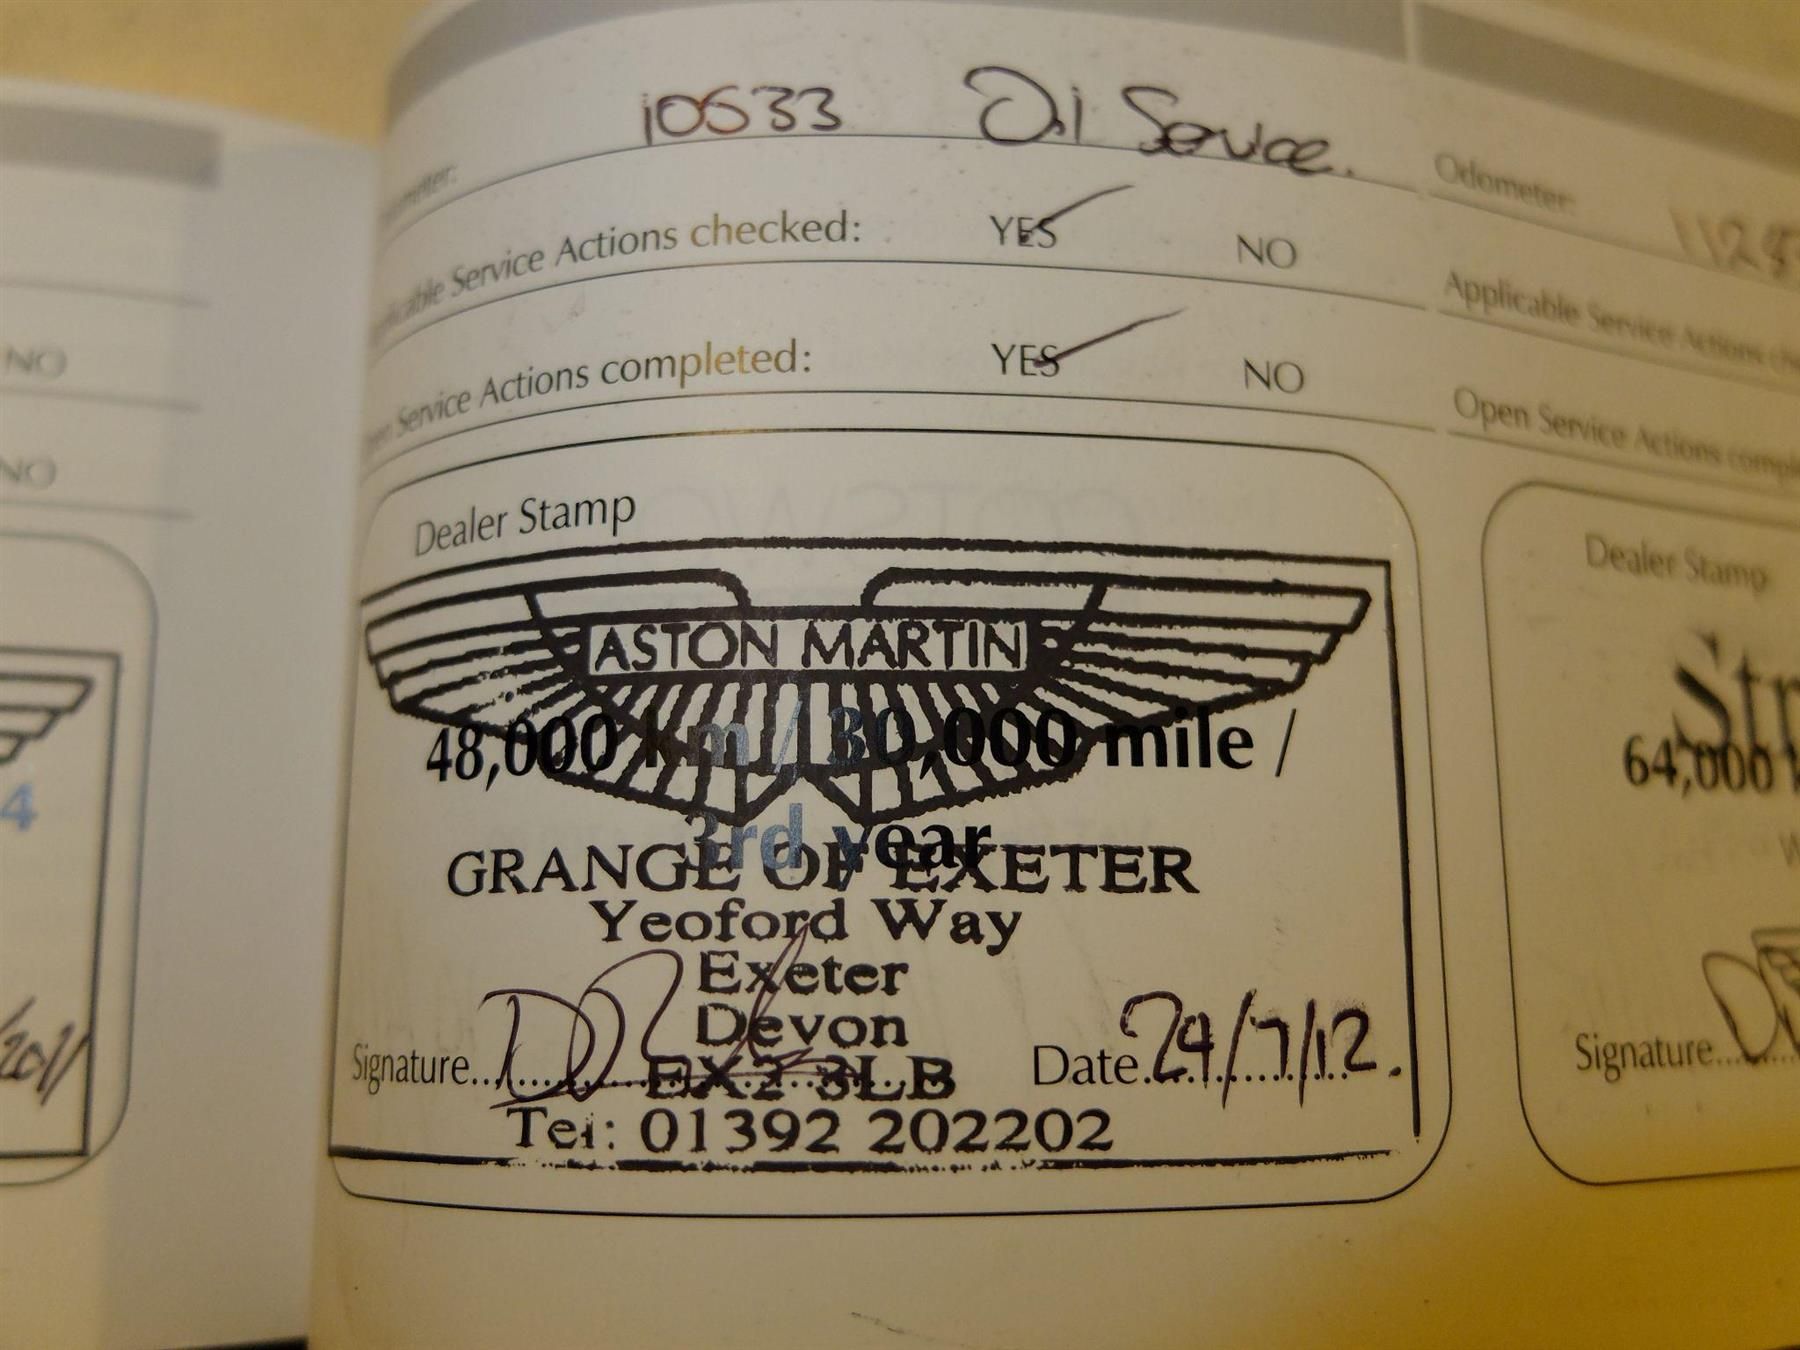 10533 Oil Service.
Applicable Service Actions checked: YES NO
Open Service Actions completed: YES NO
Dealer Stamp
ASTON MARTIN
48,000 km / 30,000 mile /
3rd year
GRANGE OF EXETER
Yeoford Way
Exeter
Devon
EX2 3LB
Signature
Date 24/7/12.
Tel: 01392 202202
NO
NO
4
/2011
Odometer:
Applicable Service Actions
Open Service Actions
Dealer Stamp
64,000
Signature